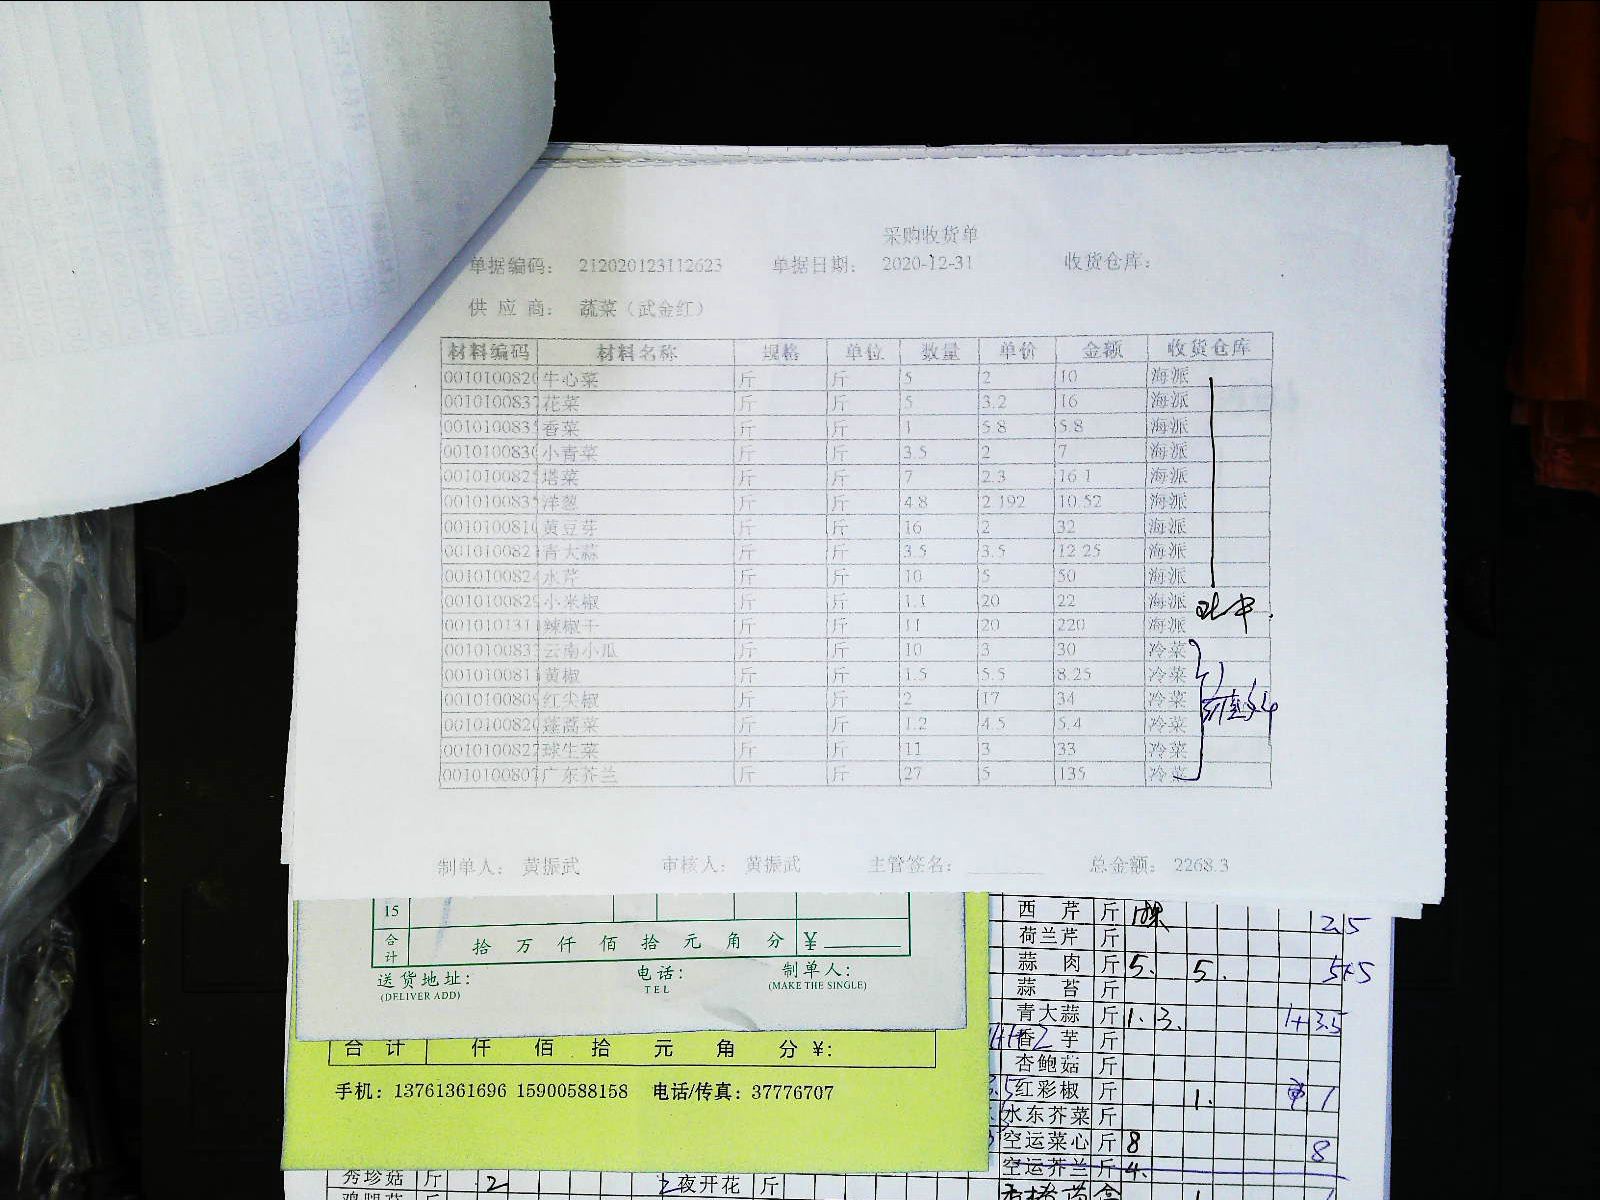 采购收货单
单据编码： 212020123112623 单据日期： 2020-12-31 收货仓库：
供 应 商： 蔬菜（武金红）
材料编码 材料名称 规格 单位 数量 单价 金额 收货仓库
0010100820 牛心菜 斤 斤 5 2 10 海派
001010083 花菜 斤 斤 5 3.2 16 海派
001010083 香菜 斤 斤 1 5.8 5.8 海派
001010083 小青菜 斤 斤 3.5 2 7 海派
001010082 塔菜 斤 斤 7 2.3 16.1 海派
001010083 洋葱 斤 斤 4.8 2.192 10.52 海派
001010081 黄豆芽 斤 斤 16 2 32 海派
001010082 青大蒜 斤 斤 3.5 3.5 12.25 海派
001010082 水芹 斤 斤 10 5 50 海派
001010082 小米椒 斤 斤 1.1 20 22 海派
001010131 辣椒干 斤 斤 11 20 220 海派
001010083 云南小瓜 斤 斤 10 3 30 冷菜
001010081 黄椒 斤 斤 1.5 5.5 8.25 冷菜
001010080 红尖椒 斤 斤 2 17 34 冷菜
001010082 蓬蒿菜 斤 斤 1.2 4.5 5.4 冷菜
001010082 球生菜 斤 斤 11 3 33 冷菜
001010080 广东芥兰 斤 斤 27 5 135 冷菜
制单人： 黄振武 审核人： 黄振武 主管签名： 总金额： 2268.3
15
合计 拾 万 仟 佰 拾 元 角 分 ¥
送货地址： 电话： 制单人：
(DELIVER ADD) TEL (MAKE THE SINGLE)
合 计 仟 佰 拾 元 角 分 ¥:
手机：13761361696 15900588158 电话/传真：37776707
西 芹 斤 25
荷兰芹 斤
蒜 肉 斤 5. 5. 5+5
蒜 苔 斤
青大蒜 斤 1. 3. 1+3.5
香 芋 斤
杏鲍菇 斤
红彩椒 斤 1. 1
水东芥菜 斤
空运菜心 斤 8 8
空运芥兰 斤 4.
秀珍菇 斤 2 夜开花 斤